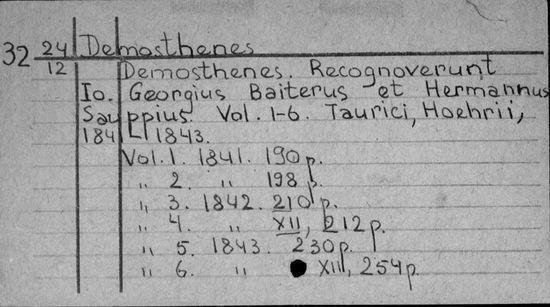 32 24/12 Demosthenes
Demosthenes. Recognoverunt
Io. Georgius Baiterus et Hermannus
Sauppius. Vol. 1-6. Taurici, Hoehrii,
1841-1843.
Vol. 1. 1841. 190 p.
„ 2. „ 198 p.
„ 3. 1842. 210 p.
„ 4. „ XII, 212 p.
„ 5. 1843. 230 p.
„ 6. „ XIII, 254 p.